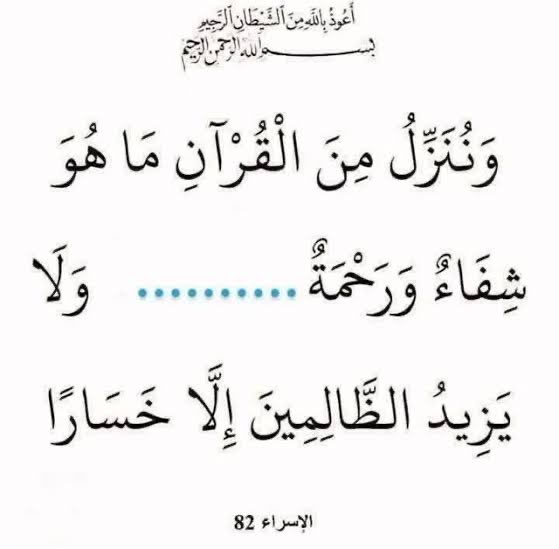 أَعُوذُ بِاللَّهِ مِنَ الشَّيْطَانِ الرَّجِيمِ
بِسْمِ اللهِ الرَّحْمَنِ الرَّحِيمِ
وَنُنَزِّلُ مِنَ الْقُرْآنِ مَا هُوَ
شِفَاءٌ وَرَحْمَةٌ .......... وَلَا
يَزِيدُ الظَّالِمِينَ إِلَّا خَسَارًا
الإسراء 82